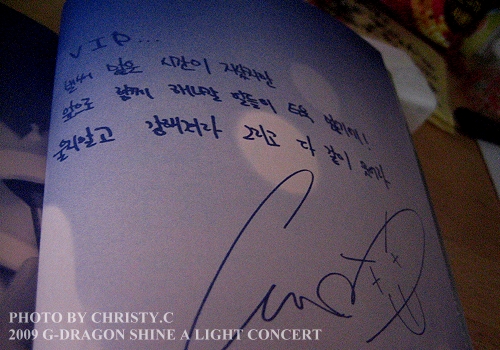 VIP...
벌써 많은 시간이 지났지만
앞으로 함께 해나갈 일들이 더욱 많기에!
울지말고 강해져라 그리고 다 같이
PHOTO BY CHRISTY.C
2009 G-DRAGON SHINE A LIGHT CONCERT